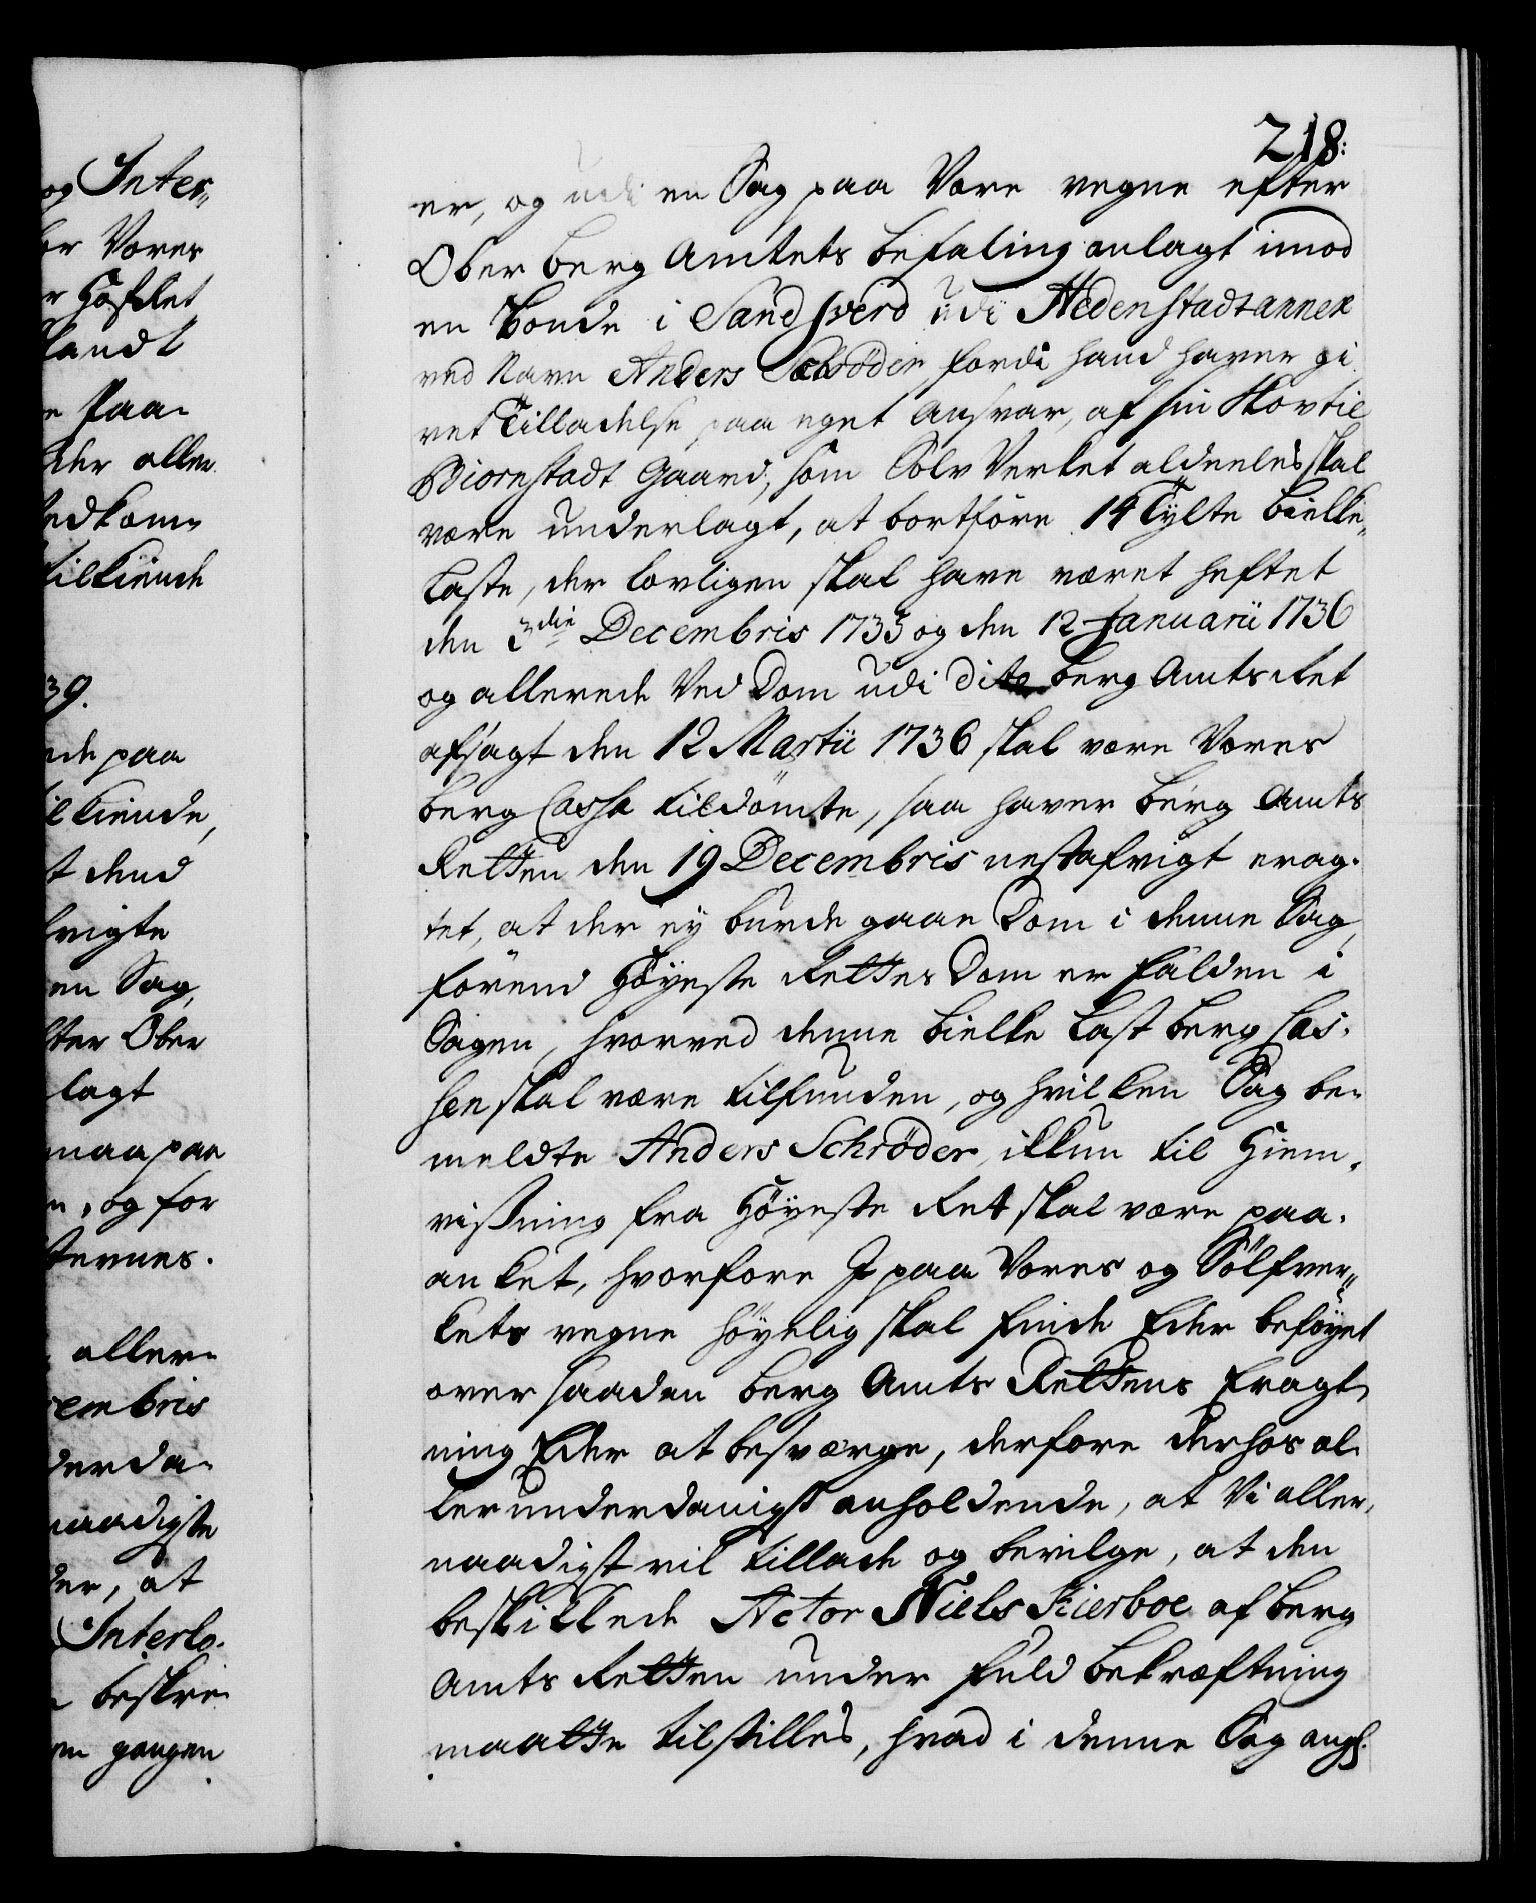 og Inter„
for Vores
r Hasslet
landt
e Paa-
der aller
Vedkom„
tilkiende
39.
nde paa
ilkiende,
t dend
frigte
en Sag,
fter Ober
lagt
maa paa
n, og for
sternes.
aller„
cembris
derda„
naadigste
der, at
Interlo-
beskre-
em gangen
218:
er, og udi en Sag paa Vore vegne efter
Ober Berg Amtets befaling anlagt imod
en Bonde i Sandsverd udi Hedenstadtannex
ved Navn Anders Schröder, fordi hand haver gi
vet Tilladelse paa eget Ansvar, af sin Skov til
Biørnstadt Gaard, som Sølv Verket aldeeles skal
være underlagt, at bortføre 14 Tylte Bielke„
Laste, der lovligen skal have været heftet
den 3die Decembris 1735 og den 12 Januarii 1736
og allerede Ved Dom udi dito Berg Amts Ret
afsagt den 12 Martii 1736 skal være Vores
Berg Cassa tildömte, saa haver Berg Amts
Retten den 19 Decembris nestafvigt erag-
tet, at der ey burde gaae Dom i denne Sag,
förend Höyeste Rettes Dom er fälden i
Sagen, hvorved denne Bielke Last Berg Cas-
sen skal være tilfunden, og hvilken Sag be-
meldte Anders Schröder, ikkun til Hiem-
viisning fra Höyeste Ret skal være paa-
anket, hvorfore I paa Vores og Sölfver„
kets vegne höyelig skal finde Eder beföyet
over saaden Berg Amts Rettens Eragt
ning Eder at besværge, derfore derhos al-
lerunderdanigst anholdende, at Vi aller-
naadigst vil tillade og bevilge, at den
beskikkede Actor Niels Kierboe af Berg
Amts Retten under fuld bekræftning
maatte tilstilles, hvad i denne Sag angl.